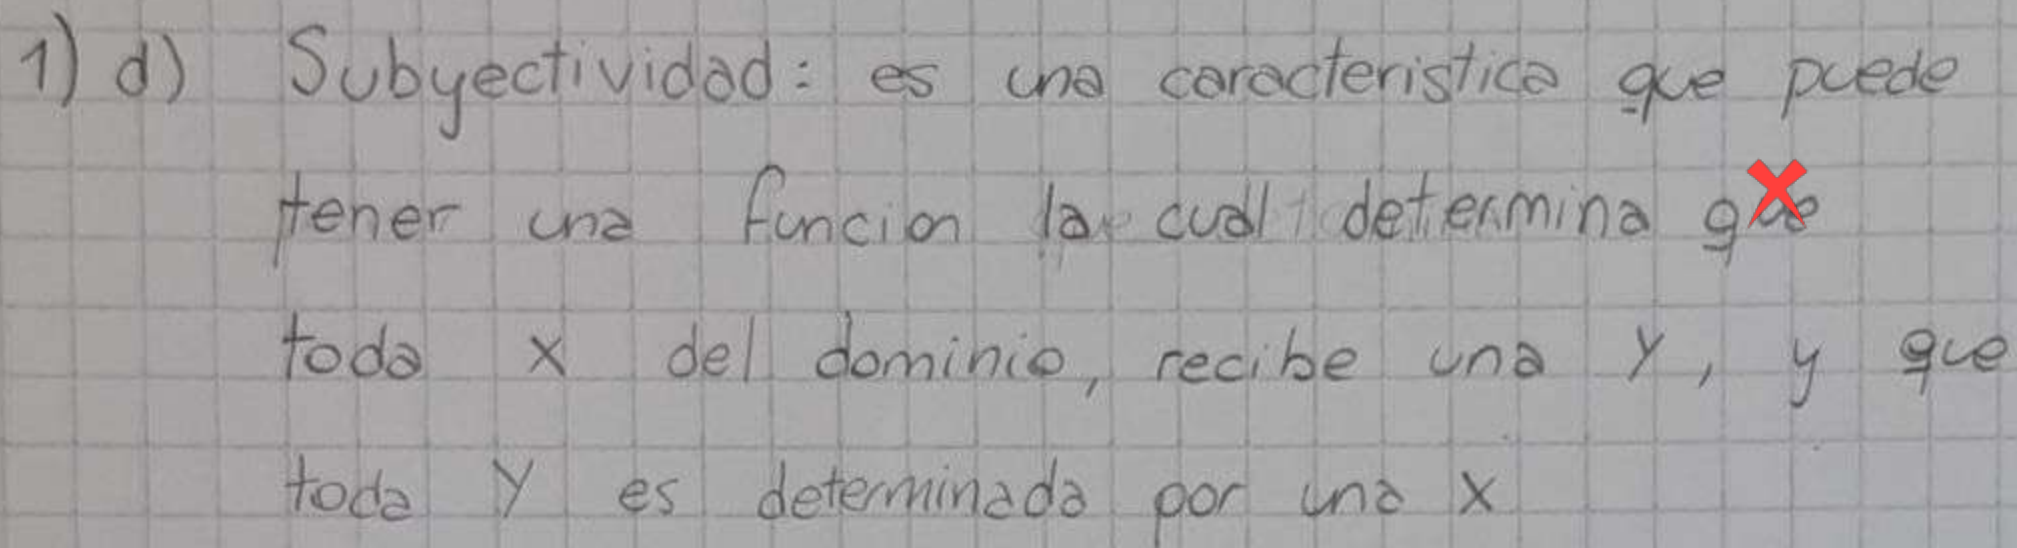 1) d) Subyectividad: es una caracteristica que puede
tener una funcion la cual determina que
toda x del dominio, recibe una y, y que
toda y es determinada por una x